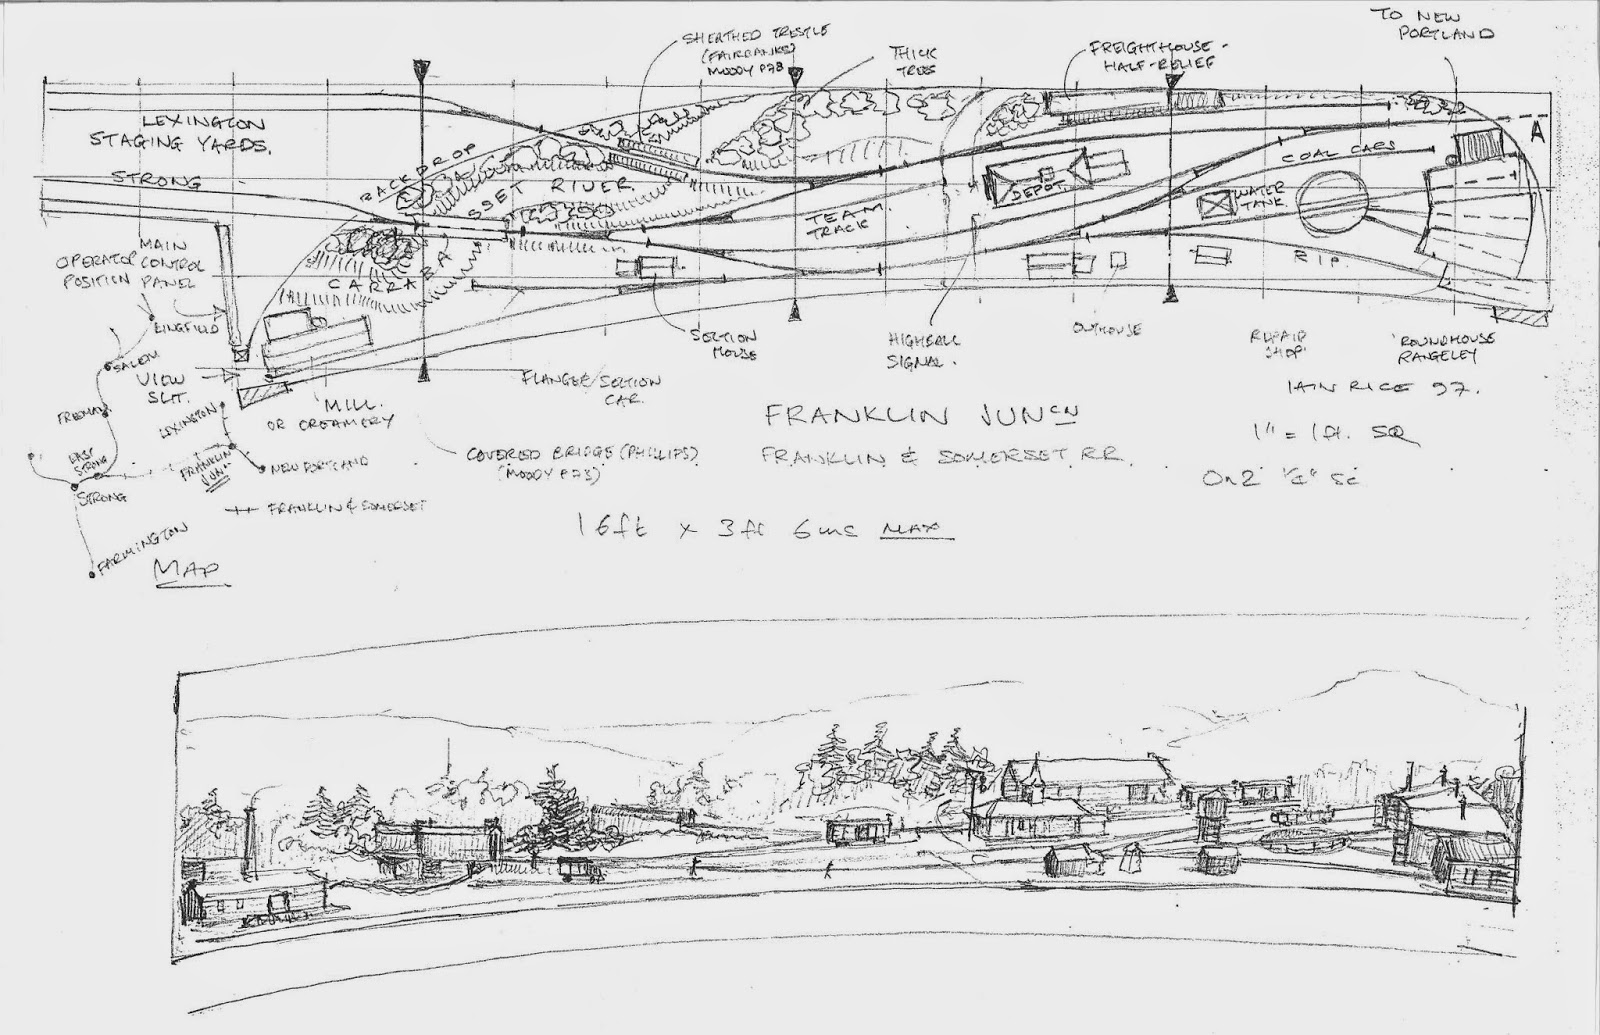 TO NEW
PORTLAND
SHEATHED TRESTLE
(FAIRBANKS)
MOODY P78
THICK
TREES
FREIGHTHOUSE -
HALF-RELIEF
LEXINGTON
STAGING YARDS.
A
COAL CARS
STRONG
BACKDROP
SSET RIVER
DEPOT.
WATER
TANK
TEAM
TRACK
MAIN
OPERATOR CONTROL
POSITION PANEL
CARRABA
R.I.P.
KINGFIELD
SECTION
HOUSE
HIGHBALL
SIGNAL.
OUTHOUSE
REPAIR
SHOP
ROUNDHOUSE
RANGELEY
SALEM
VIEW
SLIT.
FLANGER/SECTION
CAR.
IAIN RICE 97.
FREEMAN
LEXINGTON
MILL.
OR CREAMERY
FRANKLIN JUNCN
1" = 1 ft. SQ
EAST
STRONG
FRANKLIN
JUNC
NEW PORTLAND
COVERED BRIDGE (PHILLIPS)
(MOODY P73)
FRANKLIN & SOMERSET RR.
On2 1/4" Sc
STRONG
FRANKLIN & SOMERSET
16ft x 3ft 6ins MAX
FARMINGTON
MAP